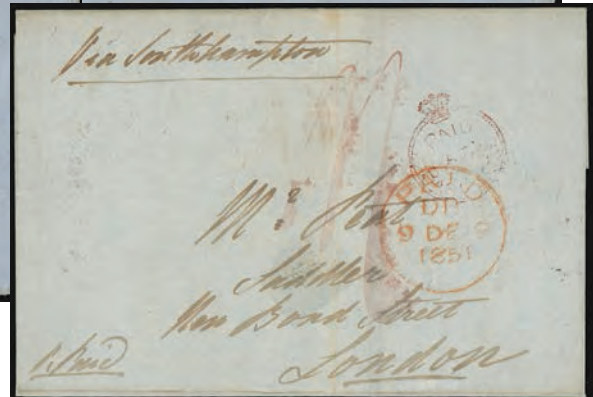 Via Southampton
PAID
PAID
DD
9 DE 9
1851
Mr. Peat
Saddler
New Bond Street
London
Paid